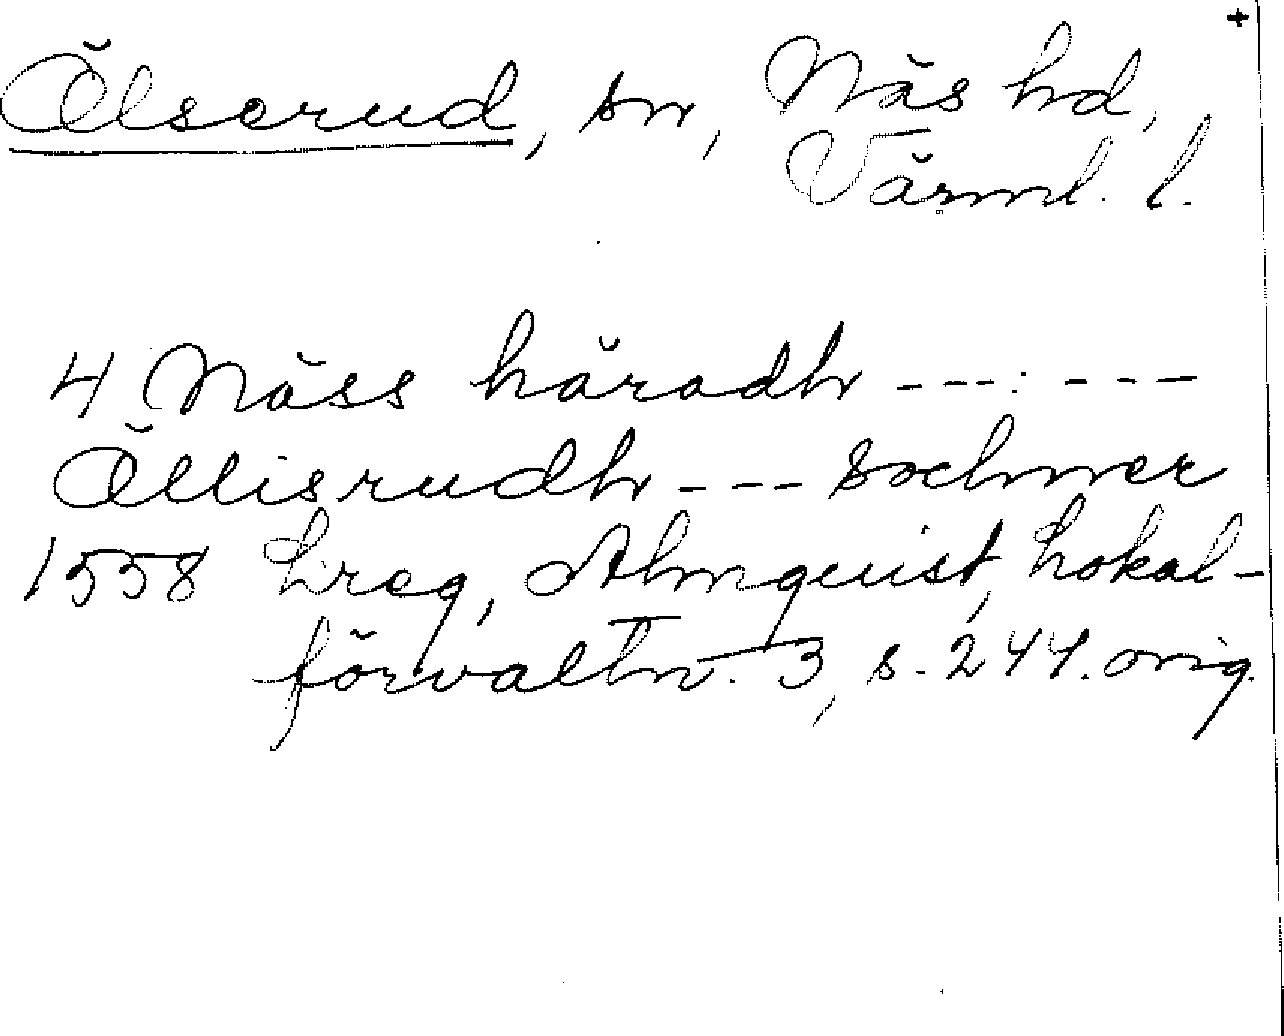 +
Älserud, sn, Näs hd,
Värml. l.
4 Näss häradh ---:---
Ällisrudh --- sochner
1558 Lreg, Almquist, Lokal-
förvaltn. 3, s. 244. orig.